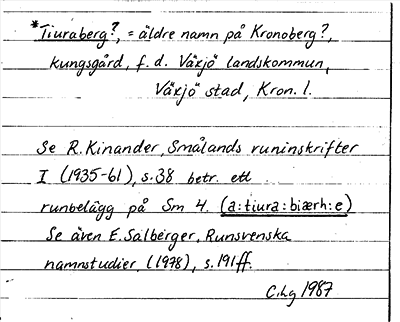 *Tiuraberg?, = äldre namn på Kronoberg?,
kungsgård, f. d. Växjö landskommun,
Växjö stad, Kron. l.
Se R. Kinander, Smålands runinskrifter
I (1935-61), s. 38 betr. ett
runbelägg på Sm 4. (a:tiura:biærh:e)
Se även E. Salberger, Runsvenska
namnstudier (1978), s. 191 ff.
C.hg 1987